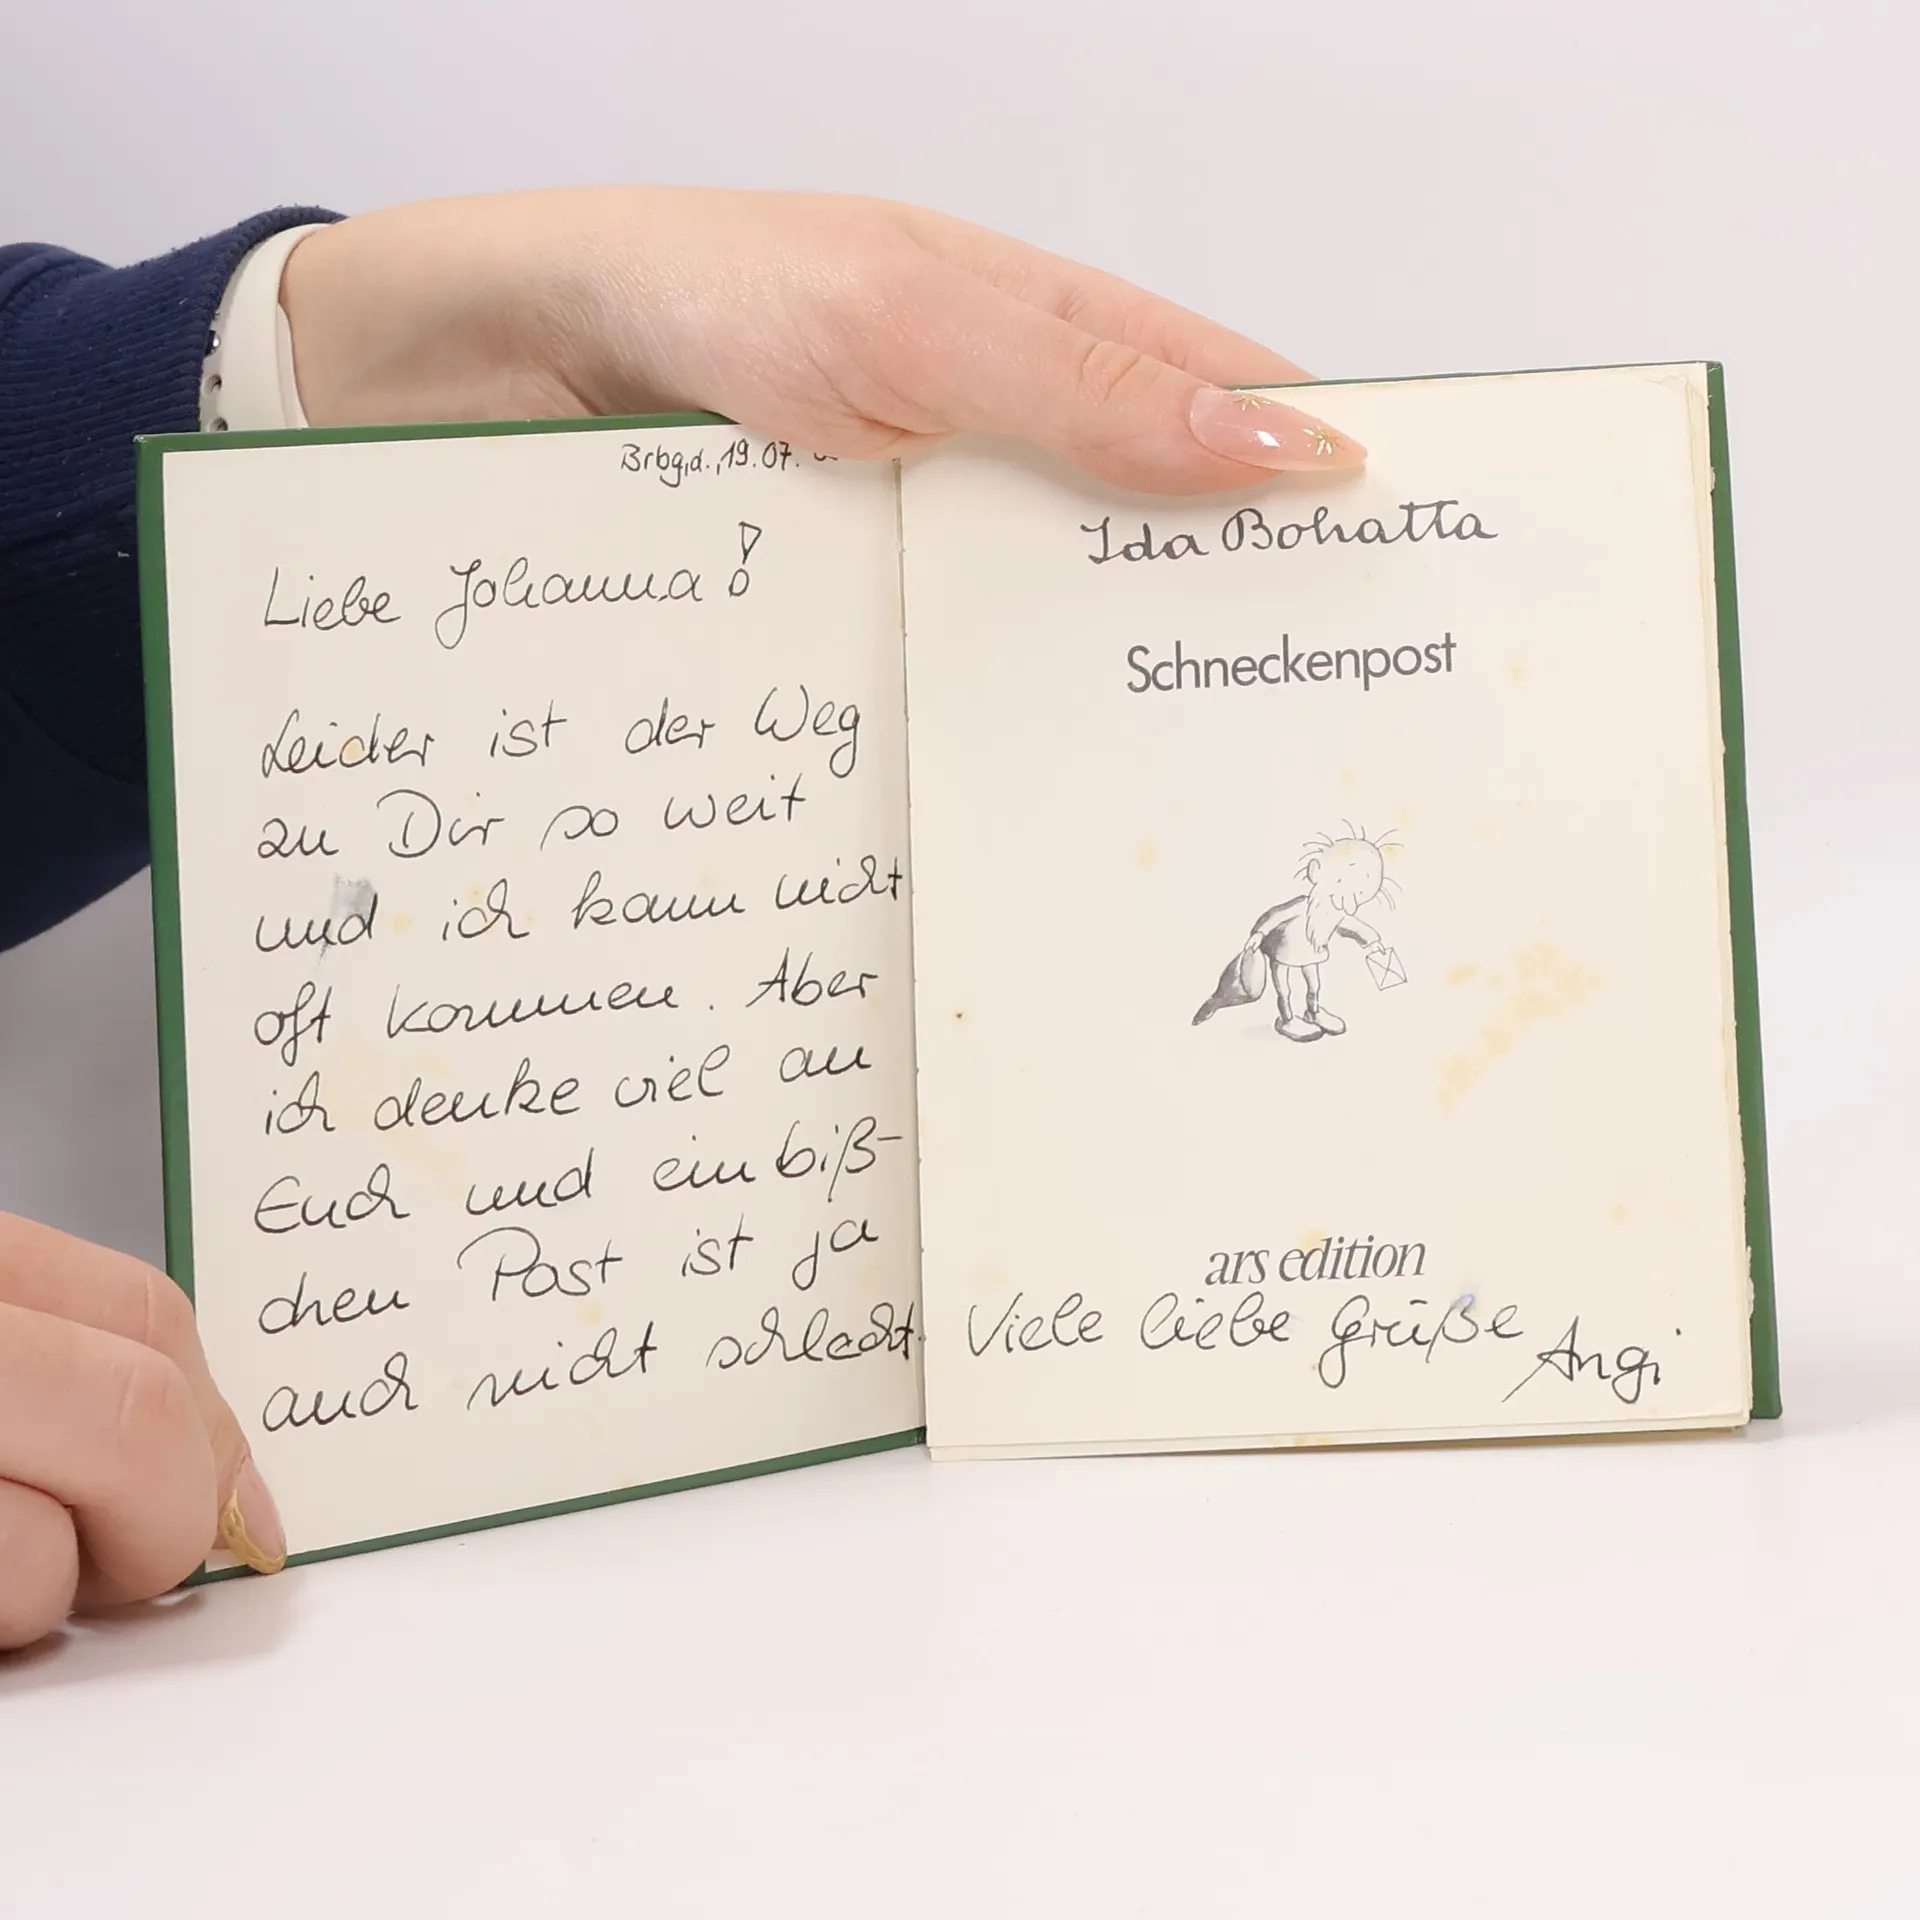 Brbg,d., 19.07.
Liebe Johanna!
Leider ist der Weg
zu Dir so weit
und ich kann nicht
oft kommen. Aber
ich denke viel an
Euch und ein biß-
chen Post ist ja
auch nicht schlecht.
Ida Bohatta
Schneckenpost
ars edition
Viele liebe Grüße
Angi